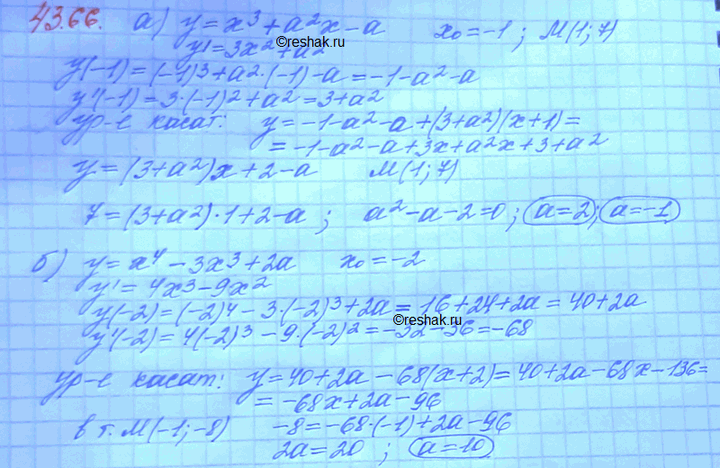 43.66. а) y = x³ + a²x - a    x₀ = -1 ; М(1; 7)
y' = 3x² + a²
©reshak.ru
y(-1) = (-1)³ + a²·(-1) - a = -1 - a² - a
y'(-1) = 3·(-1)² + a² = 3 + a²
ур-е касат: y = -1 - a² - a + (3 + a²)(x + 1) =
= -1 - a² - a + 3x + a²x + 3 + a²
y = (3 + a²)x + 2 - a    М(1; 7)
7 = (3 + a²)·1 + 2 - a ; a² - a - 2 = 0 ; a = 2 ; a = -1
б) y = x⁴ - 3x³ + 2a    x₀ = -2
y' = 4x³ - 9x²
y(-2) = (-2)⁴ - 3·(-2)³ + 2a = 16 + 24 + 2a = 40 + 2a
©reshak.ru
y'(-2) = 4(-2)³ - 9·(-2)² = -32 - 36 = -68
ур-е касат: y = 40 + 2a - 68(x + 2) = 40 + 2a - 68x - 136 =
= -68x + 2a - 96
в т. М(-1; -8)    -8 = -68·(-1) + 2a - 96
2a = 20 ; a = 10